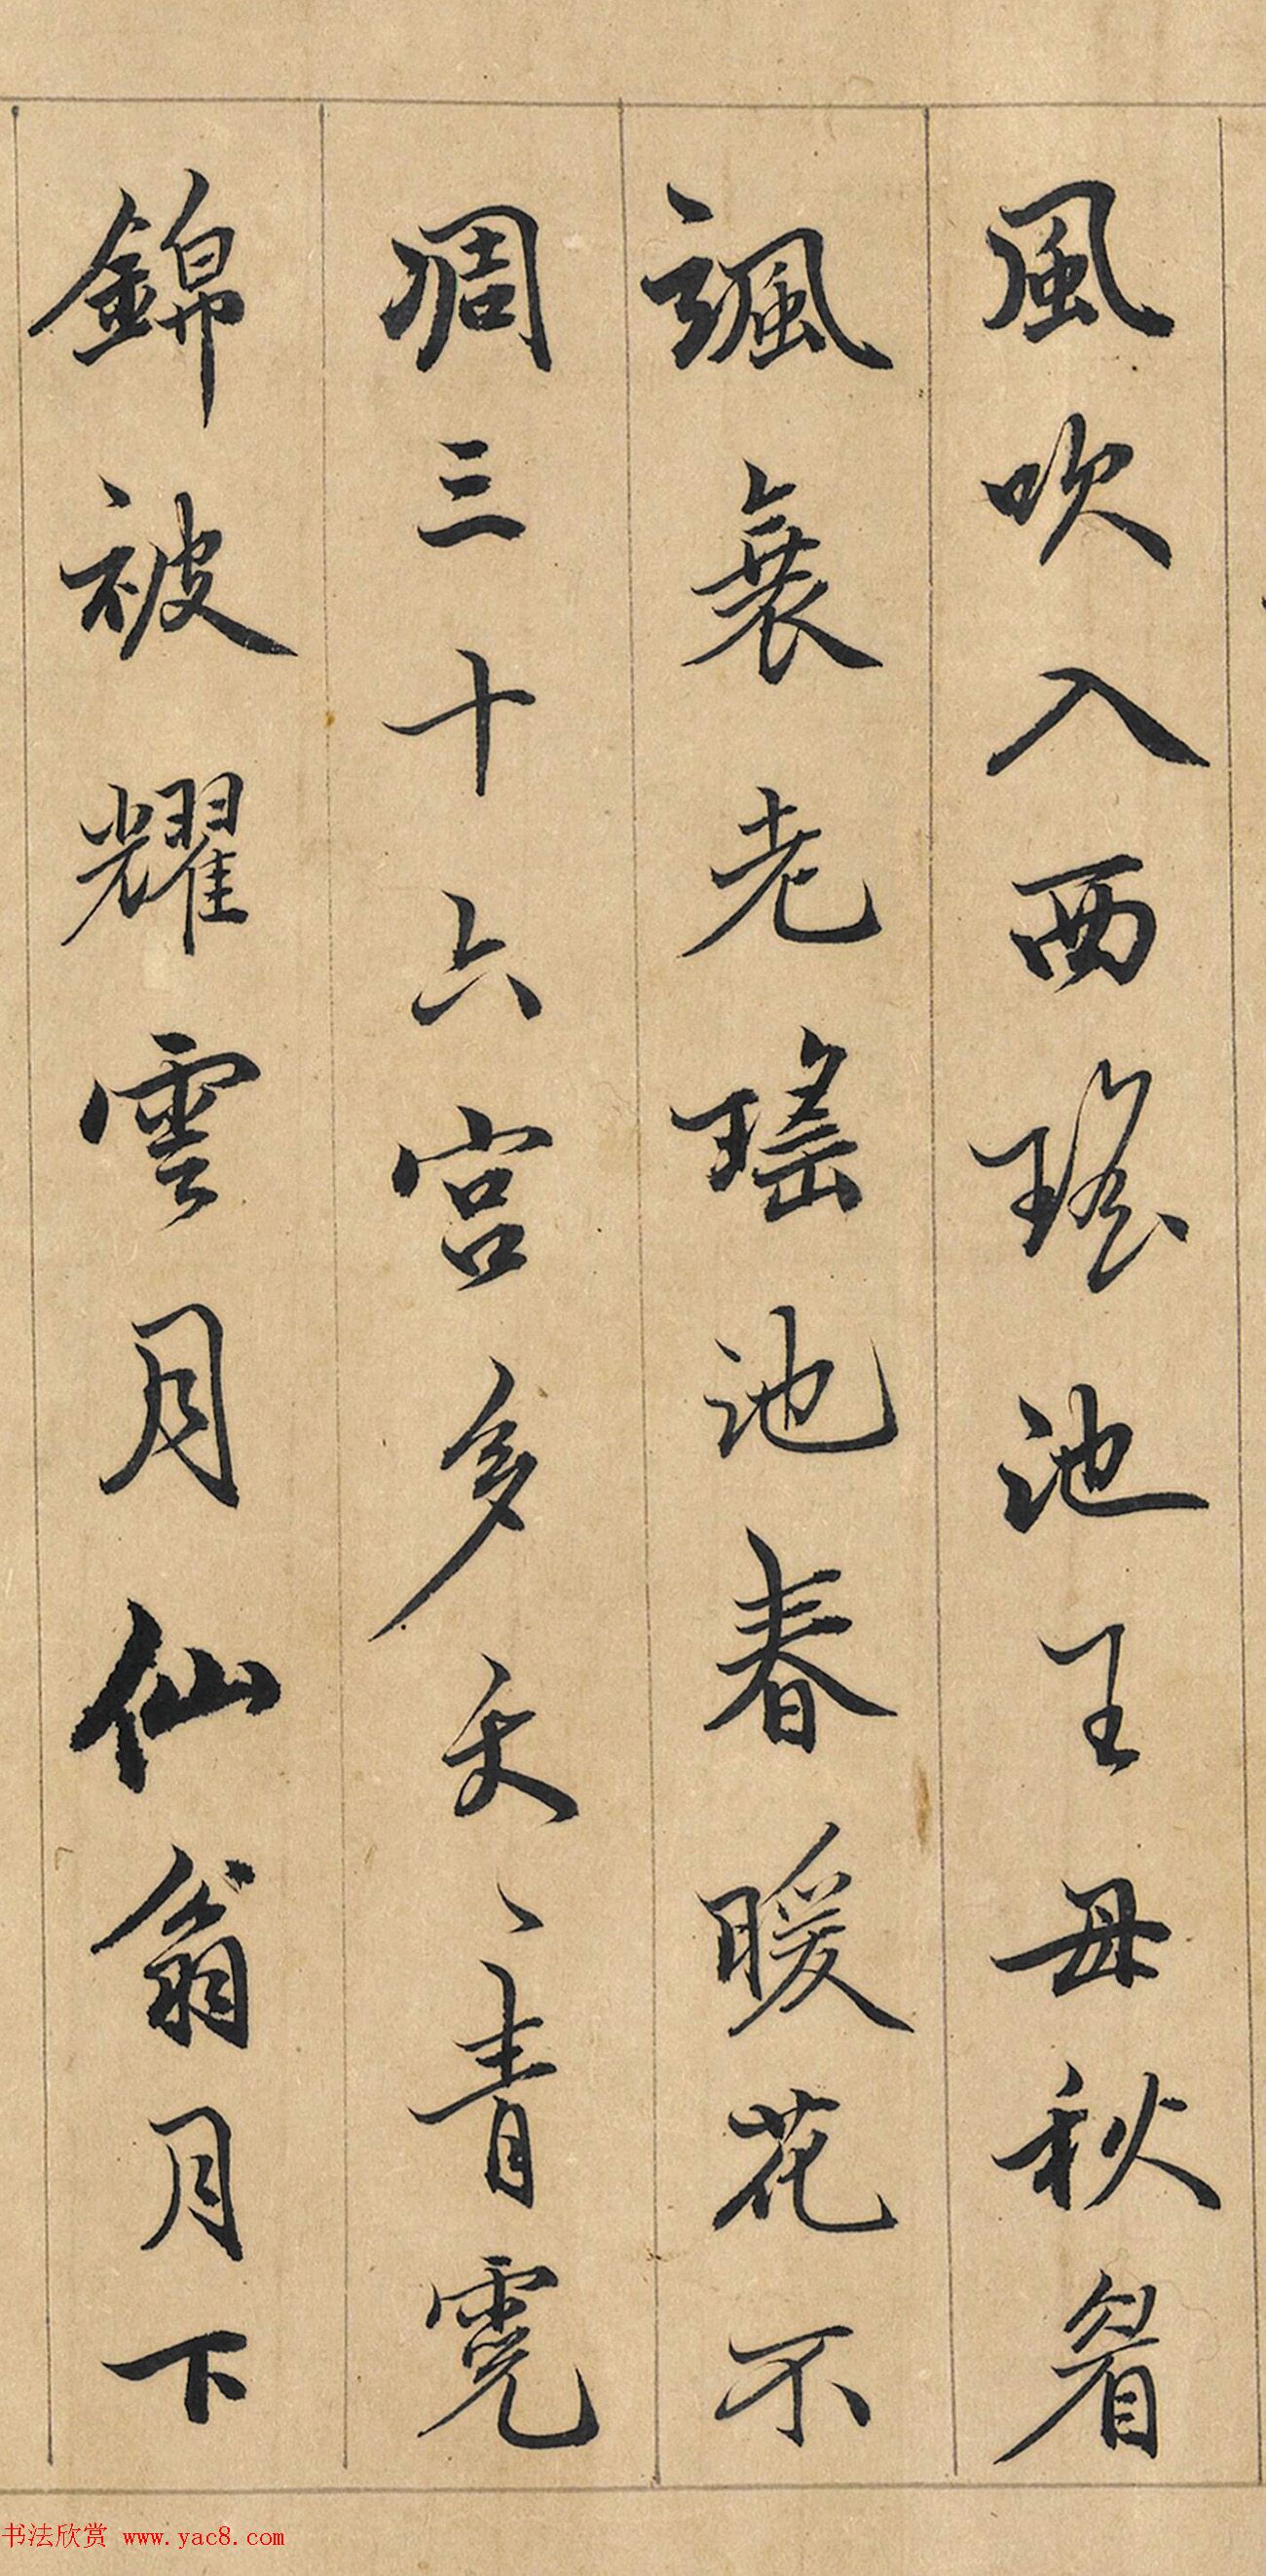 風吹入西瑤池王母秋眉
颯衰老瑤池春暖花不
凋三十六宮多夭〻青霓
錦被耀雲月仙翁月下
书法欣赏 www.yac8.com